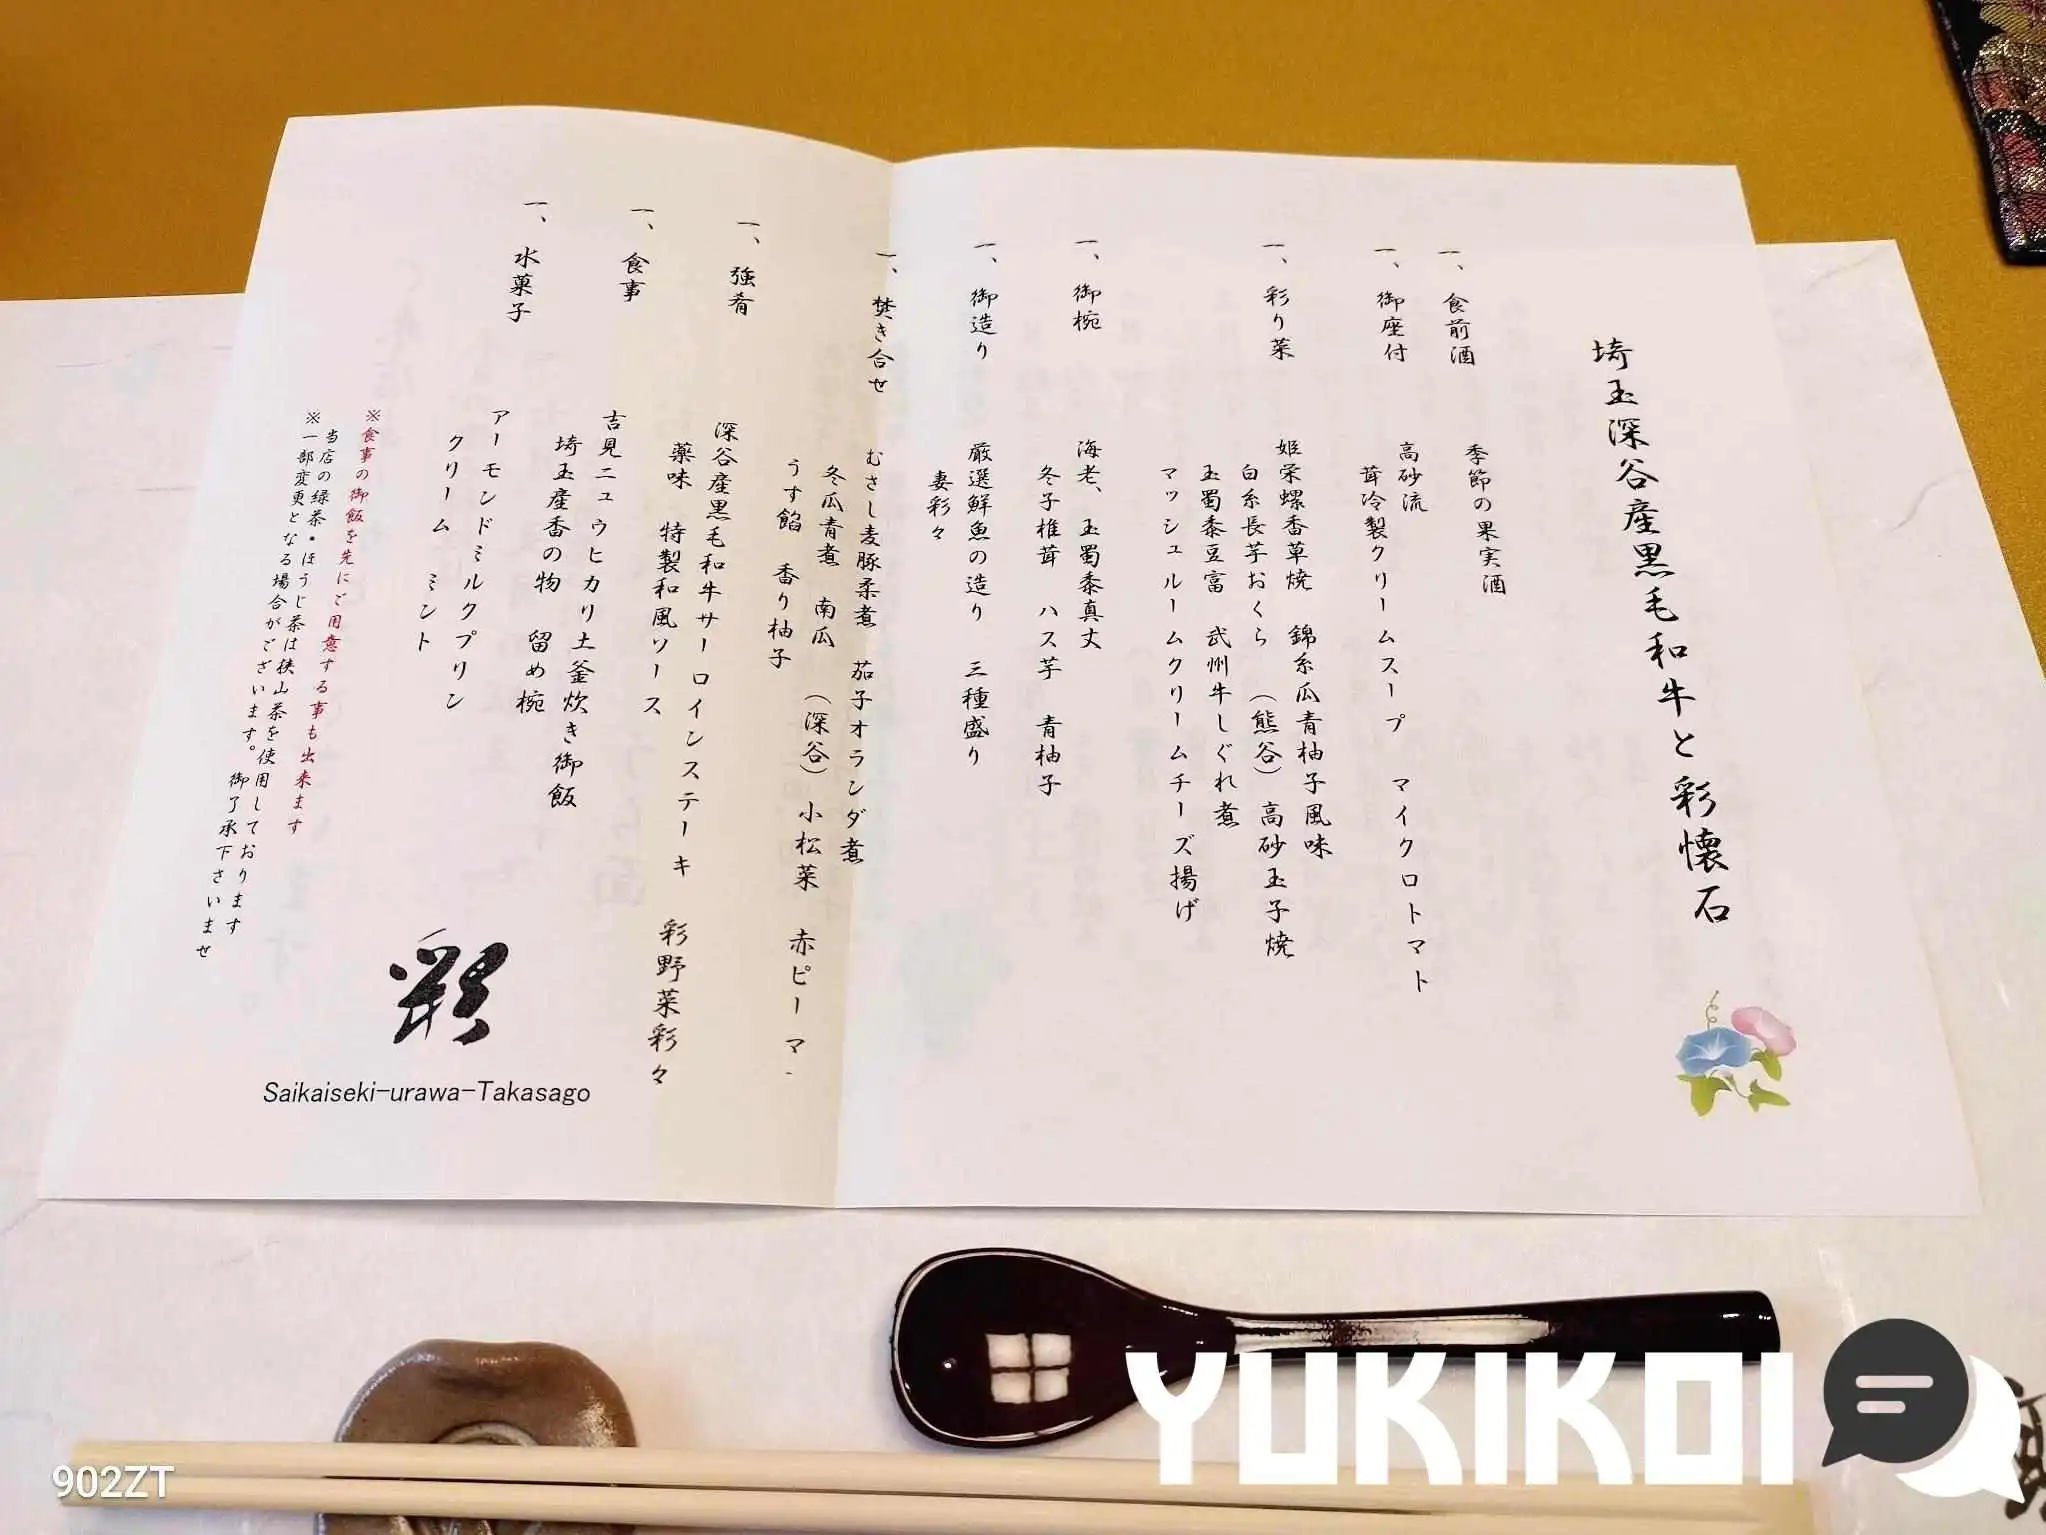 埼玉深谷産黒毛和牛と彩懐石
一、食前酒
季節の果実酒
一、御座付
高砂流
茸冷製クリームスープ　マイクロトマト
一、彩り菜
姫栄螺香草焼　錦糸瓜青柚子風味
白糸長芋おくら　（熊谷）高砂玉子焼
玉蜀黍豆富　武州牛しぐれ煮
マッシュルームクリームチーズ揚げ
一、御椀
海老、玉蜀黍真丈
冬子椎茸　ハス芋　青柚子
一、御造り
厳選鮮魚の造り　三種盛り
妻彩々
一、焚き合せ
むさし麦豚柔煮　茄子オランダ煮
冬瓜青煮　南瓜　（深谷）小松菜　赤ピーマン
うす餡　香り柚子
一、強肴
深谷産黒毛和牛サーロインステーキ　彩野菜彩々
薬味　特製和風ソース
一、食事
吉見ニュウヒカリ土釜炊き御飯
埼玉産香の物　留め椀
一、水菓子
アーモンドミルクプリン
クリーム　ミント
※食事の御飯を先にご用意する事も出来ます
当店の緑茶・ほうじ茶は狭山茶を使用しております
※一部変更となる場合がございます。御了承下さいませ
彩
Saikaiseki-urawa-Takasago
YUKIKOI
902ZT